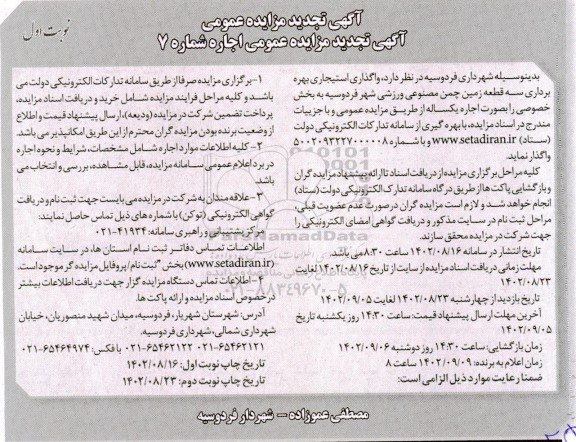 نوبت اول
آگهی تجدید مزایده عمومی
آگهی تجدید مزایده عمومی اجاره شماره ۷
بدینوسیله شهرداری فردوسیه در نظر دارد، واگذاری استیجاری بهره
برداری سه قطعه زمین چمن مصنوعی ورزشی شهر فردوسیه به بخش
خصوصی را بصورت اجاره یکساله از طریق مزایده عمومی و با جزییات
مندرج در اسناد مزایده، با بهره گیری از سامانه تدارکات الکترونیکی دولت
(ستاد) www.setadiran.ir و با شماره ۵۰۰۲۰۹۳۲۲۷۰۰۰۰۰۸
واگذار نماید.
کلیه مراحل برگزاری مزایده از دریافت اسناد تا ارائه پیشنهاد مزایده گران
و بازگشایی پاکت ها از طریق درگاه سامانه تدارک الکترونیکی دولت (ستاد)
انجام خواهد شد و لازم است مزایده گران در صورت عدم عضویت قبلی،
مراحل ثبت نام در سایت مذکور و دریافت گواهی امضای الکترونیکی را
جهت شرکت در مزایده محقق سازند.
تاریخ انتشار در سامانه ۱۴۰۲/۰۸/۱۶ ساعت ۸:۳۰ می باشد.
مهلت زمانی دریافت اسناد مزایده از سایت از تاریخ ۱۴۰۲/۰۸/۱۶ لغایت
۱۴۰۲/۰۸/۲۳
تاریخ بازدید از چهارشنبه ۱۴۰۲/۰۸/۲۳ لغایت ۱۴۰۲/۰۹/۰۵
آخرین مهلت ارسال پیشنهاد قیمت: ساعت ۱۴:۳۰ روز یکشنبه تاریخ
۱۴۰۲/۰۹/۰۵
زمان بازگشایی: ساعت ۱۴:۳۰ روز دوشنبه ۱۴۰۲/۰۹/۰۶
زمان اعلام به برنده: ۱۴۰۲/۰۹/۰۹ ساعت ۸
ضمنا رعایت موارد ذیل الزامی است:
۱- برگزاری مزایده صرفا از طریق سامانه تدارکات الکترونیکی دولت می
باشد و کلیه مراحل فرایند مزایده شامل خرید و دریافت اسناد مزایده،
پرداخت تضمین شرکت در مزایده (ودیعه)، ارسال پیشنهاد قیمت و اطلاع
از وضعیت برنده بودن مزایده گران محترم از این طریق امکانپذیر می باشد.
۲- کلیه اطلاعات موارد اجاره شامل مشخصات، شرایط و نحوه اجاره
در برد اعلام عمومی سامانه مزایده، قابل مشاهده، بررسی و انتخاب می
باشد.
۳- علاقه مندان به شرکت در مزایده می بایست جهت ثبت نام و دریافت
گواهی الکترونیکی (توکن) با شماره های ذیل تماس حاصل نمایند:
مرکز پشتیبانی و راهبری سامانه: ۴۱۹۳۴-۰۲۱
اطلاعات تماس دفاتر ثبت نام استان ها، در سایت سامانه
(www.setadiran.ir) بخش "ثبت نام/پروفایل مزایده گر موجود است.
۴- اطلاعات تماس دستگاه مزایده گزار جهت دریافت اطلاعات بیشتر
در خصوص اسناد مزایده و ارائه پاکت ها.
آدرس: شهرستان شهریار، فردوسیه، میدان شهید منصوریان، خیابان
شهرداری شمالی، شهرداری فردوسیه.
۰۲۱-۶۵۴۶۲۱۲۱ ۰۲۱-۶۵۴۶۲۱۲۲ با فکس: ۰۲۱-۶۵۴۶۴۹۷۴
تاریخ چاپ نوبت اول: ۱۴۰۲/۰۸/۱۶
تاریخ چاپ نوبت دوم: ۱۴۰۲/۰۸/۲۳
مصطفی عموزاده – شهردار فردوسیه
ParsNamadData
۰۲۱-۸۸۳۴۹۶۷۰-۵